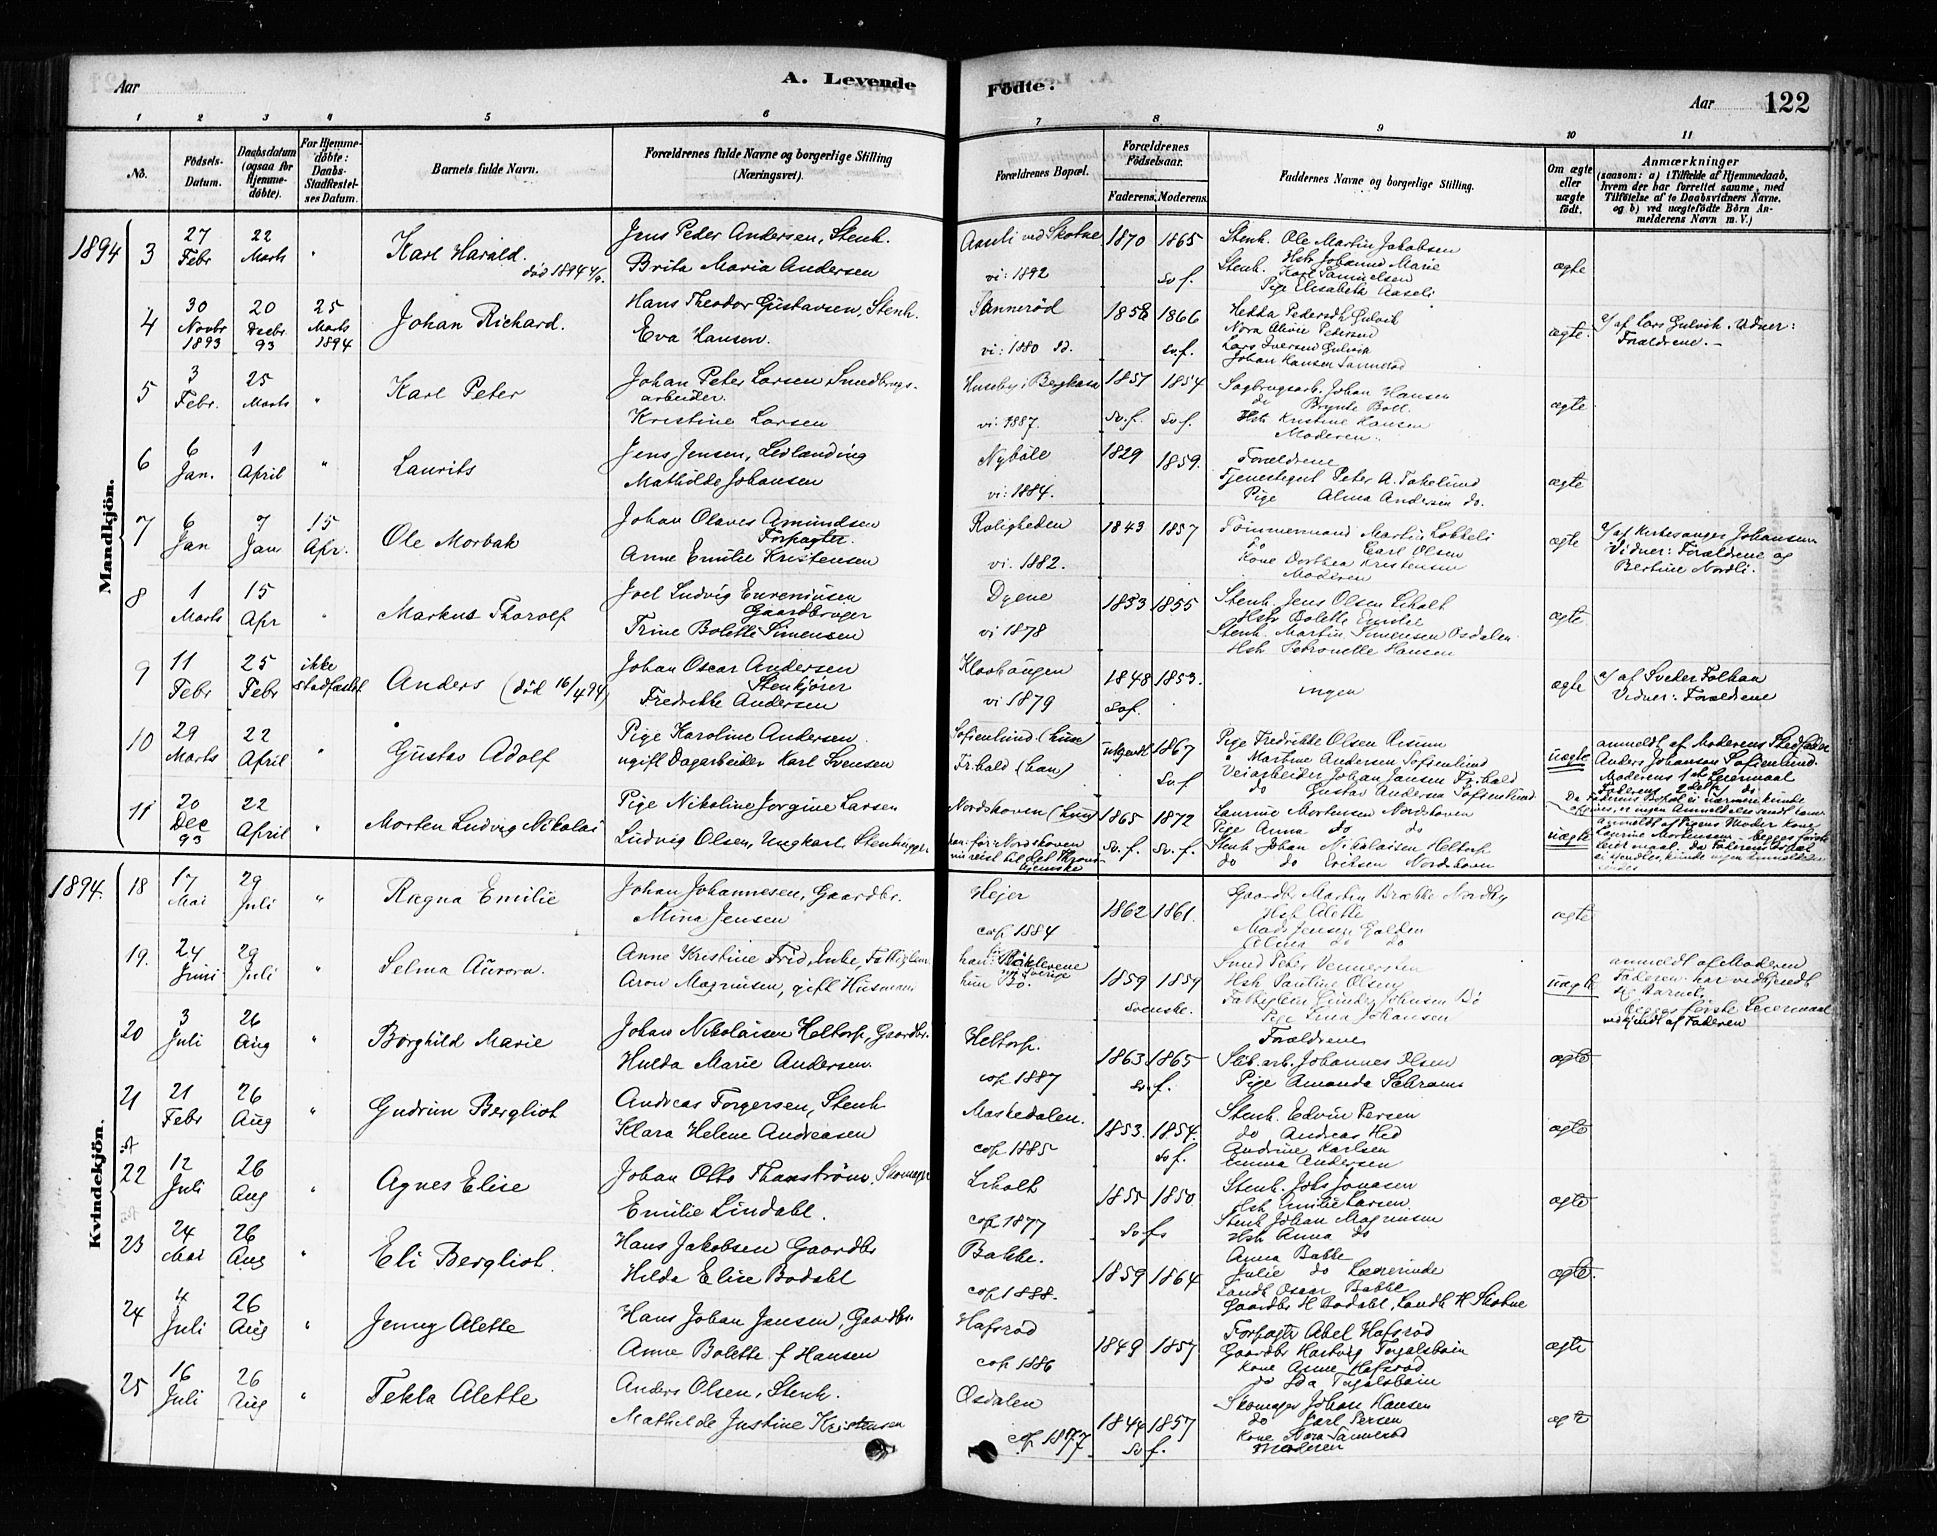 Aar
A. Levende
1 2 3 4 5 6
No.
Fødsels-Datum.
Daabsdatum (ogsaa for Hjemmedøbte).
For Hjemmedøbte: Daabs-Stadfæstelses Datum.
Barnets fulde Navn.
Forældrenes fulde Navne og borgerlige Stilling (Næringsvei).
Mandkjøn.
1894 3 27 Febr 22 Marts " Karl Harald. død 1894 Jens Peder Andersen, Stenh.
Brita Maria Andersen
4 30 Novbr 1893 20 Decbr 93 25 Marts 1894 Johan Richard. Hans Theodor Gustavsen, Stenh.
Eva Hansen.
5 3 Febr. 25 Marts " Karl Peter Johan Peter Larsen Smedbrugs-
arbeider.
Kristine Larsen
6 6 Jan. 1 April " Laurits Jens Jensen, Ledlænding
Mathilde Johansen
7 6 Jan 7 Jan 15 Apr. Ole Morbak Johan Olaves Amundsen
Forpagter.
Anne Emilie Kristensen
8 1 Marts 15 Apr " Markus Thorolf Joel Ludvig Eureniusen
Gaardbruger
Trine Bolette Simensen
9 11 Febr 25 Febr ikke stadfæstet Anders (død 16/4 94) Johan Oscar Andersen
Stenhugger
Fredrikke Andersen
10 29 Marts 22 April " Gustav Adolf Pige Karoline Andersen
ugift Dagarbeider Karl Svensen
11 20 Dec 93 22 April " Morten Ludvig Nikolai Pige Nikoline Jorgine Larsen
Ludvig Olsen, Ungkarl, Stenhugger
Kvindekjøn.
1894. 18 17 Mai 29 Juli " Ragna Emilie Johan Johannesen, Gaardbr.
Mina Jensen
19. 24 Juni 29 Juli " Selma Aurora. Anne Kristine Frid, Enke, Fattiglem
Aron Magnusen, gift Husmand
20 3 Juli 26 Aug " Borghild Marie Johan Nikolaisen Heltorp, Gaardbr.
Hulda Marie Andersen.
21 21 Febr 26 Aug " Gudrun Bergliot Andreas Torgersen, Stenh
Klara Helene Andreasen
22 12 Juli 26 Aug " Agnes Elise Johan Otto Thanstrøm, Skomager
Emilie Lindahl.
23 24 Mai 26 Aug " Eli Bergliot. Hans Jakobsen Gaardbr
Hilda Elise Bodahl
24 4 Juli 26 Aug " Jenny Alette Hans Johan Jensen, Gaardbr.
Anne Bolette f Hansen
25 16 Juli 26 Aug " Tekla Alette Anders Olsen, Stenh.
Mathilde Justine Kristensen
Fødte.
Aar 122
7 8 9 10 11
Forældrenes Bopæl.
Forældrenes Fødselsaar.
Faderens. Moderens.
Faddernes Navne og borgerlige Stilling.
Om ægte eller uægte født.
Anmærkninger
(saasom: a) i Tilfælde af Hjemmedaab, hvem der har forrettet samme, med Tilføielse af to Daabsvidners Navne, og b) ved uægtefødte Børn Anmelderens Navn m. V.)
Aaseli ved Skotne vi: 1892 1870 1865 Sv f. Stenh. Ole Martin Jakobsen
Hstr Johanne Marie
Stenh. Karl Samuelsen
Pige Elisabeth Aaseli
ægte
Sannerød vi: 1880 1858 1866 Sv.f. Hedda Pedersdt Gulvik
Nora Alvie Pedersen
Lars Iversen Gulvik
Johan Hansen Sannerød
ægte. af Lars Gulvik. Vidner:
Forældrene.
Huseby i Bergkasa vi: 1887. 1857 1854 Sv.f. Sv f. Sagbrugsarb. Johan Hansen
do Brynte Boll.
Hstr Kristine Hansen
Moderen.
ægte
Nybøle vi: 1884. 1829 1859. Forældrene
Tjenestegut Peter A. Takelund
Pige Alma Andersen do.
ægte
Roligheden vi. 1882. 1843 1857 Tømmermand Martin Løkkeli
Do Carl Olsen
Kone Dorthea Kristensen
Moderen
ægte af Kirkesanger Johansen
Vidner: Forældrene og
Bertine Nordli.
Dyene vi 1878 1833 1855 Stenh. Jens Olsen Liholt
Hstr Bolette Emilie
Stenh. Martin Simensen Osdalen
Hstr Petronelle Hansen
ægte
vi 1879 1848 1853. Sv f. ingen ægte af Sveder Folkan
Vidner: Forældrene
Sofienlund (hun) Fribald (han) ukjendt 1867 Sv.f Pige Fredrikke Olsen Risum
" Martine Andersen Sofienlund
Veiarbeider Johan Jansen Fribald
do Gustav Andersen Sofienlund
uægte anmeldt af Moderens Stedfader
Anders Johansen Sofienlund.
Moderens 1ste Leiermaal
Faderens 2det do
Nordshoven (hun) 1865 1872 Sv.f. Sv.f. Laurine Mortensen Nordshoven
Pige Anna do do
Stenh Johan Nikolaisen Heltorp
do do Eriksen Nordshoven
uægte anmeldt af Pigens Moder Kone
Laurine Mortensen. begges første
Leiermaal. da Faderens Bopæl
ei kjendtes, kunde ingen Anmeldelse
sendes
Hejer cop 1884 1862 1861. Gaardbr Martin Brække Nordby
Hst Alette
Mads Jensen Galden
Alma do do
ægte
hun Bø. 1859 1859 Svenske. Smed Peter Vennersten
Hstr Pauline Olsen
Pige Lina Johansen
uægte anmeldt af Moderen
Faderen har vedkjendt
sig Barnet.
Begges første Leiermaal
vedkjendt af Faderen
Heltorp. cop 1887 1863 1865 Sv. f. Forældrene
Slib. arb. Johannes Olsen
Pige Amanda Schrams
ægte
Maskedalen. cop 1885 1853. 1854. Sv f. Stenh. Edvin Persen
do Andreas Hed
Andrine Karlsen
Emma Andersen
ægte
Liholt cop 1877 1855 1850 Sv f. Stenh. Johs Jonasen
Hstr Emilie Larsen
Stenh Johan Magnusen
Hstr Anna do
ægte
Bakke. cop 1888. 1859 1864 Anna Bakke
Julie do Lærerinde
Landh Oscar Bakke
Gaardbr H Bodahl, Landh H Skotne
ægte.
Hafsrød cop 1886 1849 1857 Forpagtr Abel Hafsrød
Gaardbr Hartvig Torgalsbøin
Kone Anne Hafsrød
do Ida Torgalsbøin
ægte
Øsdalen cop 1877 1844 1857 Sv f. Skomager Johan Hansen
do Karl Persen
Kone Nora Sannerød
Moderen
ægte